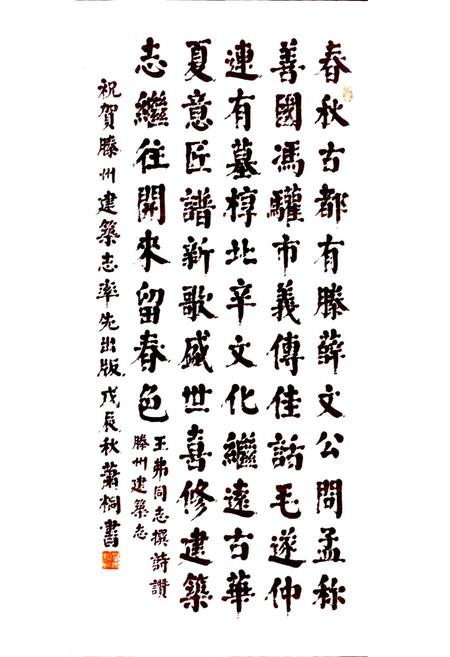 春秋古都有滕薛文公問孟称
善國馮驩市義傳佳話毛遂仲
連有墓椁北辛文化繼遠古華
夏意匠譜新歌盛世喜修建築
志繼往開來留春色
玉弗同志撰詩讚
滕州建築志
祝賀滕州建築志率先出版戊辰秋蕭桐書